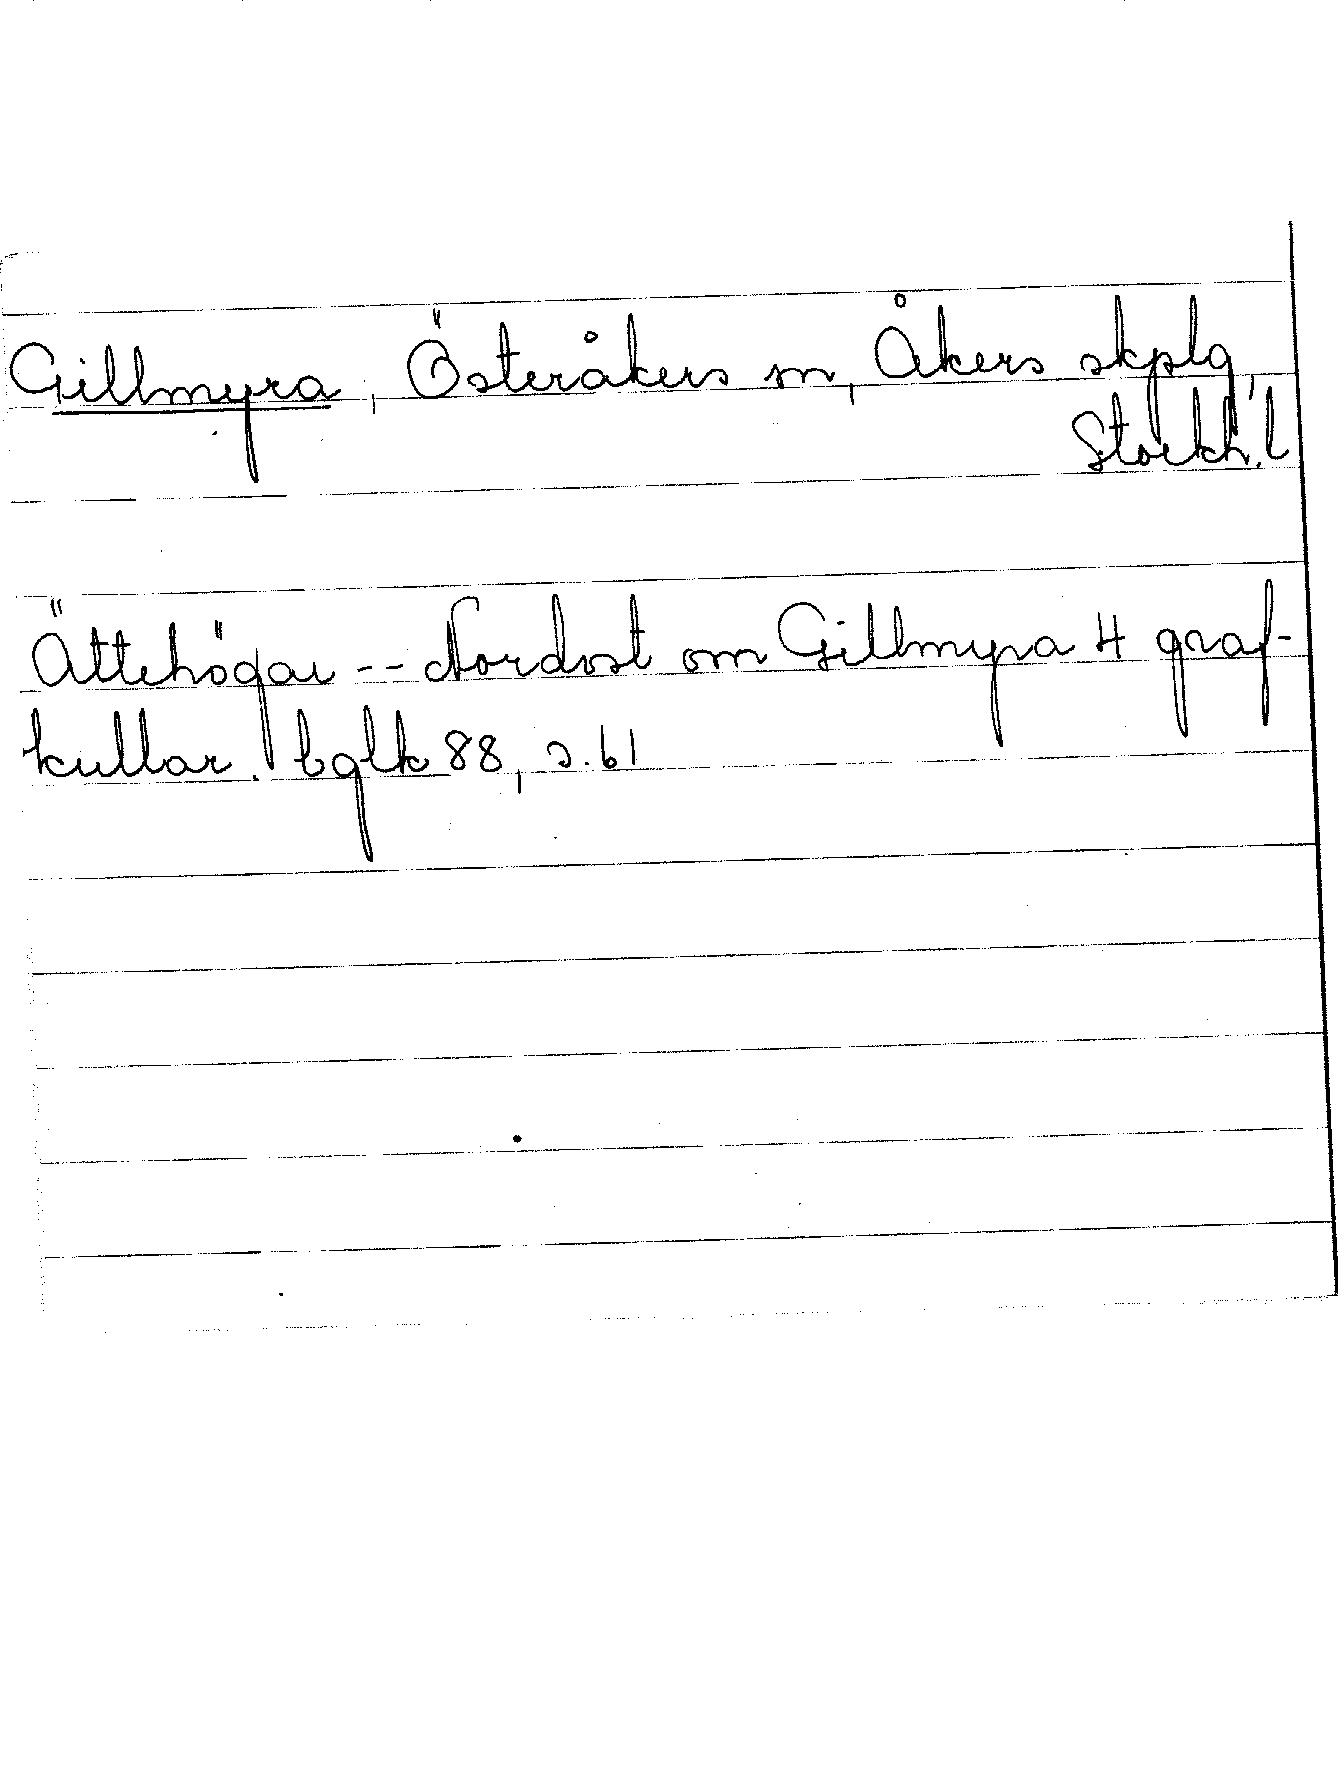 Gillmyra, Österåkers sn, Åkers skplg,
Stockh. l
Ättehögar -- Nordost om Gillmyra 4 graf-
kullar. bglk 88, s. 61